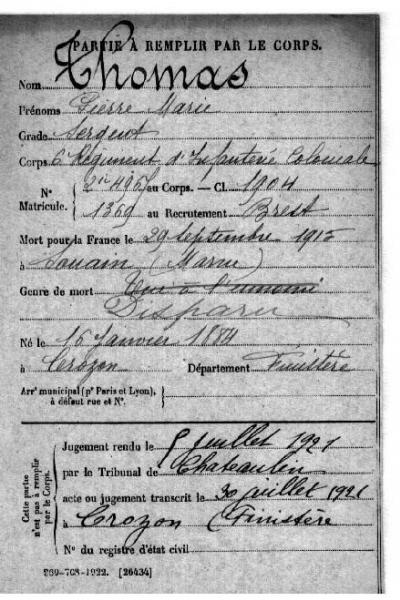 PARTIE À REMPLIR PAR LE CORPS.
Nom Thomas
Prénoms Pierre Marie
Grade Sergent
Corps 6e Régiment d'Infanterie Coloniale
N° Matricule. { au Corps. — Cl. 1904
1369 au Recrutement Brest
Mort pour la France le 29 Septembre 1915
à (Marne)
Genre de mort Tué à l'ennemi
Disparu
Né le 16 Janvier 1884
à Crozon Département Finistère
Arrt municipal (pr Paris et Lyon), à défaut rue et N°. }
Cette partie n'est pas à remplir par le Corps.
Jugement rendu le 5 juillet 1921
par le Tribunal de Chateaulin
acte ou jugement transcrit le 30 juillet 1921
à Crozon (Finistère
N° du registre d'état civil
[26434]